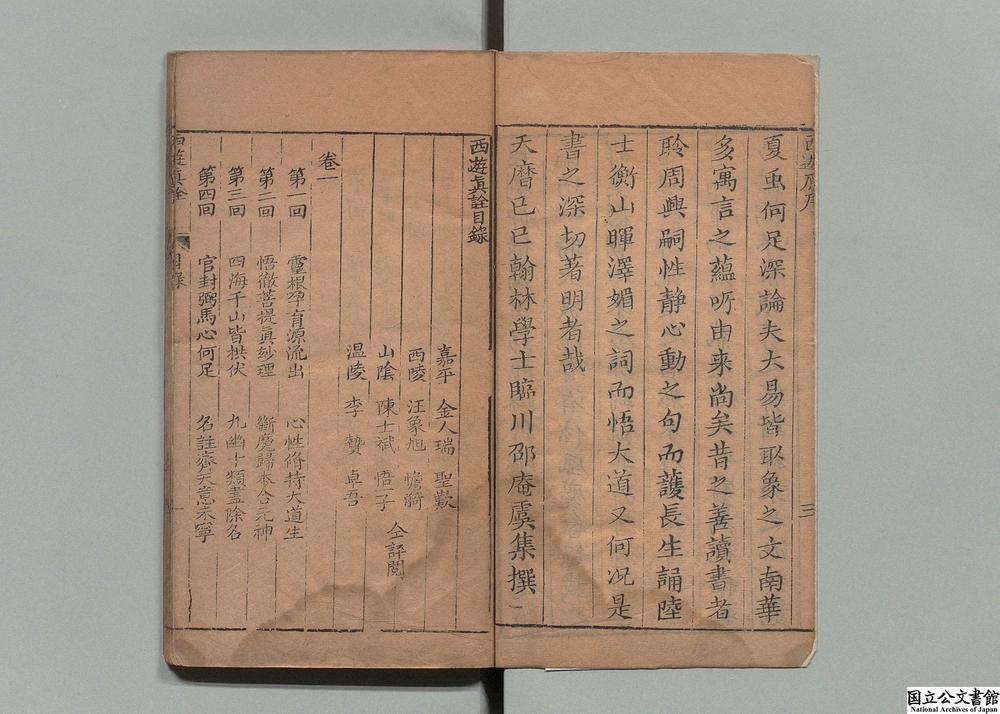 西遊原序
三
夏虫何足深論夫大易皆取象之文南華
多寓言之蘊所由来尚矣昔之善讀書者
聆周興嗣性静心動之句而䕶長生誦陸
士衡山暉澤媚之詞而悟大道又何况是
書之深切著明者哉
天曆己巳翰林學士臨川邵庵虞集撰
西遊眞詮目錄
嘉平 金人瑞 聖歎
西陵 汪象旭 憺漪
山陰 陳士斌 悟子 仝評閱
温陵 李贄 卓吾
卷一
第一回 靈根孕育源流出 心性脩持大道生
第二回 悟徹菩提眞玅理 斷魔歸本合元神
第三回 四海千山皆拱伏 九幽十類盡除名
第四回 官封弼馬心何足 名註齊天意未寧
西遊眞詮
目錄
一
国立公文書館
National Archives of Japan